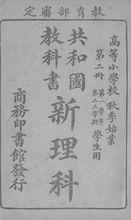 教育部審定
高等小學校 秋季始業
第二冊 第一學年第二三學期 學生用
共和國教科書
新理科
商務印書館發行